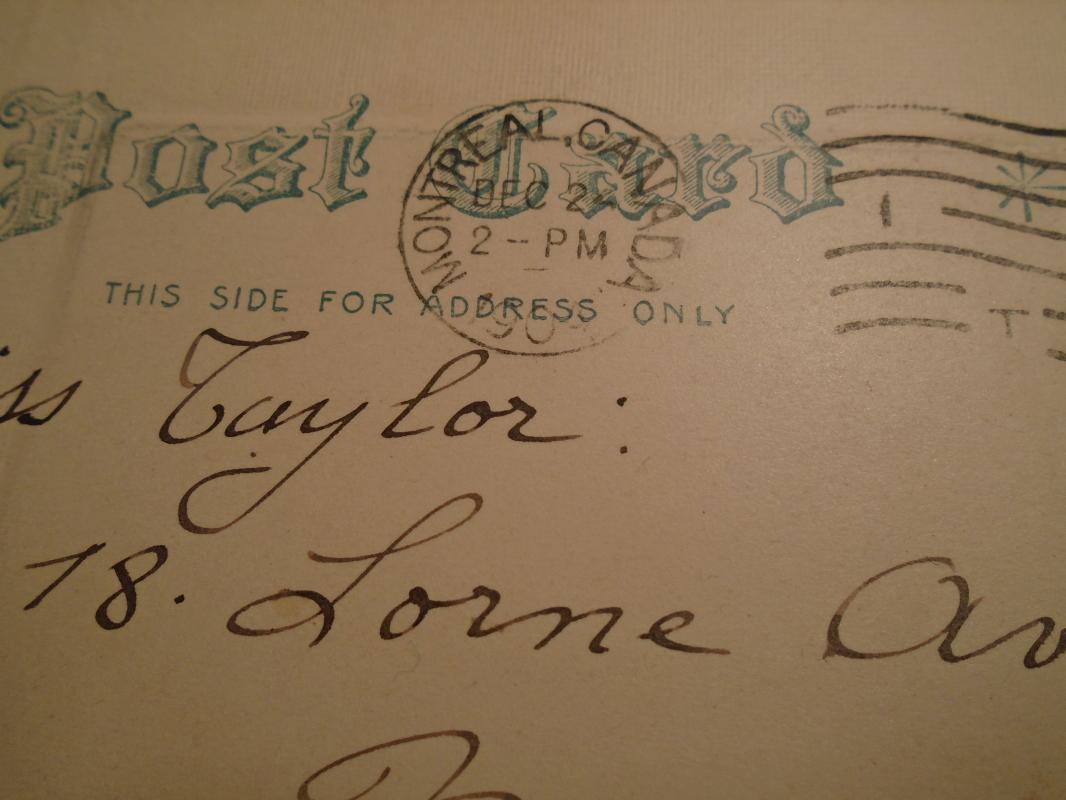 Post Card
MONTREAL, CANADA
DEC 24
2-PM
190
1
T
THIS SIDE FOR ADDRESS ONLY
iss Taylor:
78. Lorne Av